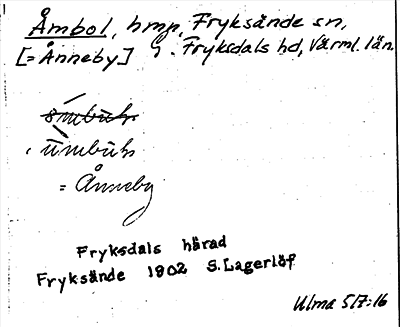 Åmbol, hmp, Fryksände sn,
[= Ånneby] Fryksdals hd, Värml. län.
= Ånneby
Fryksdals härad
Fryksände 1902 S. Lagerlöf
Ulma 517:16